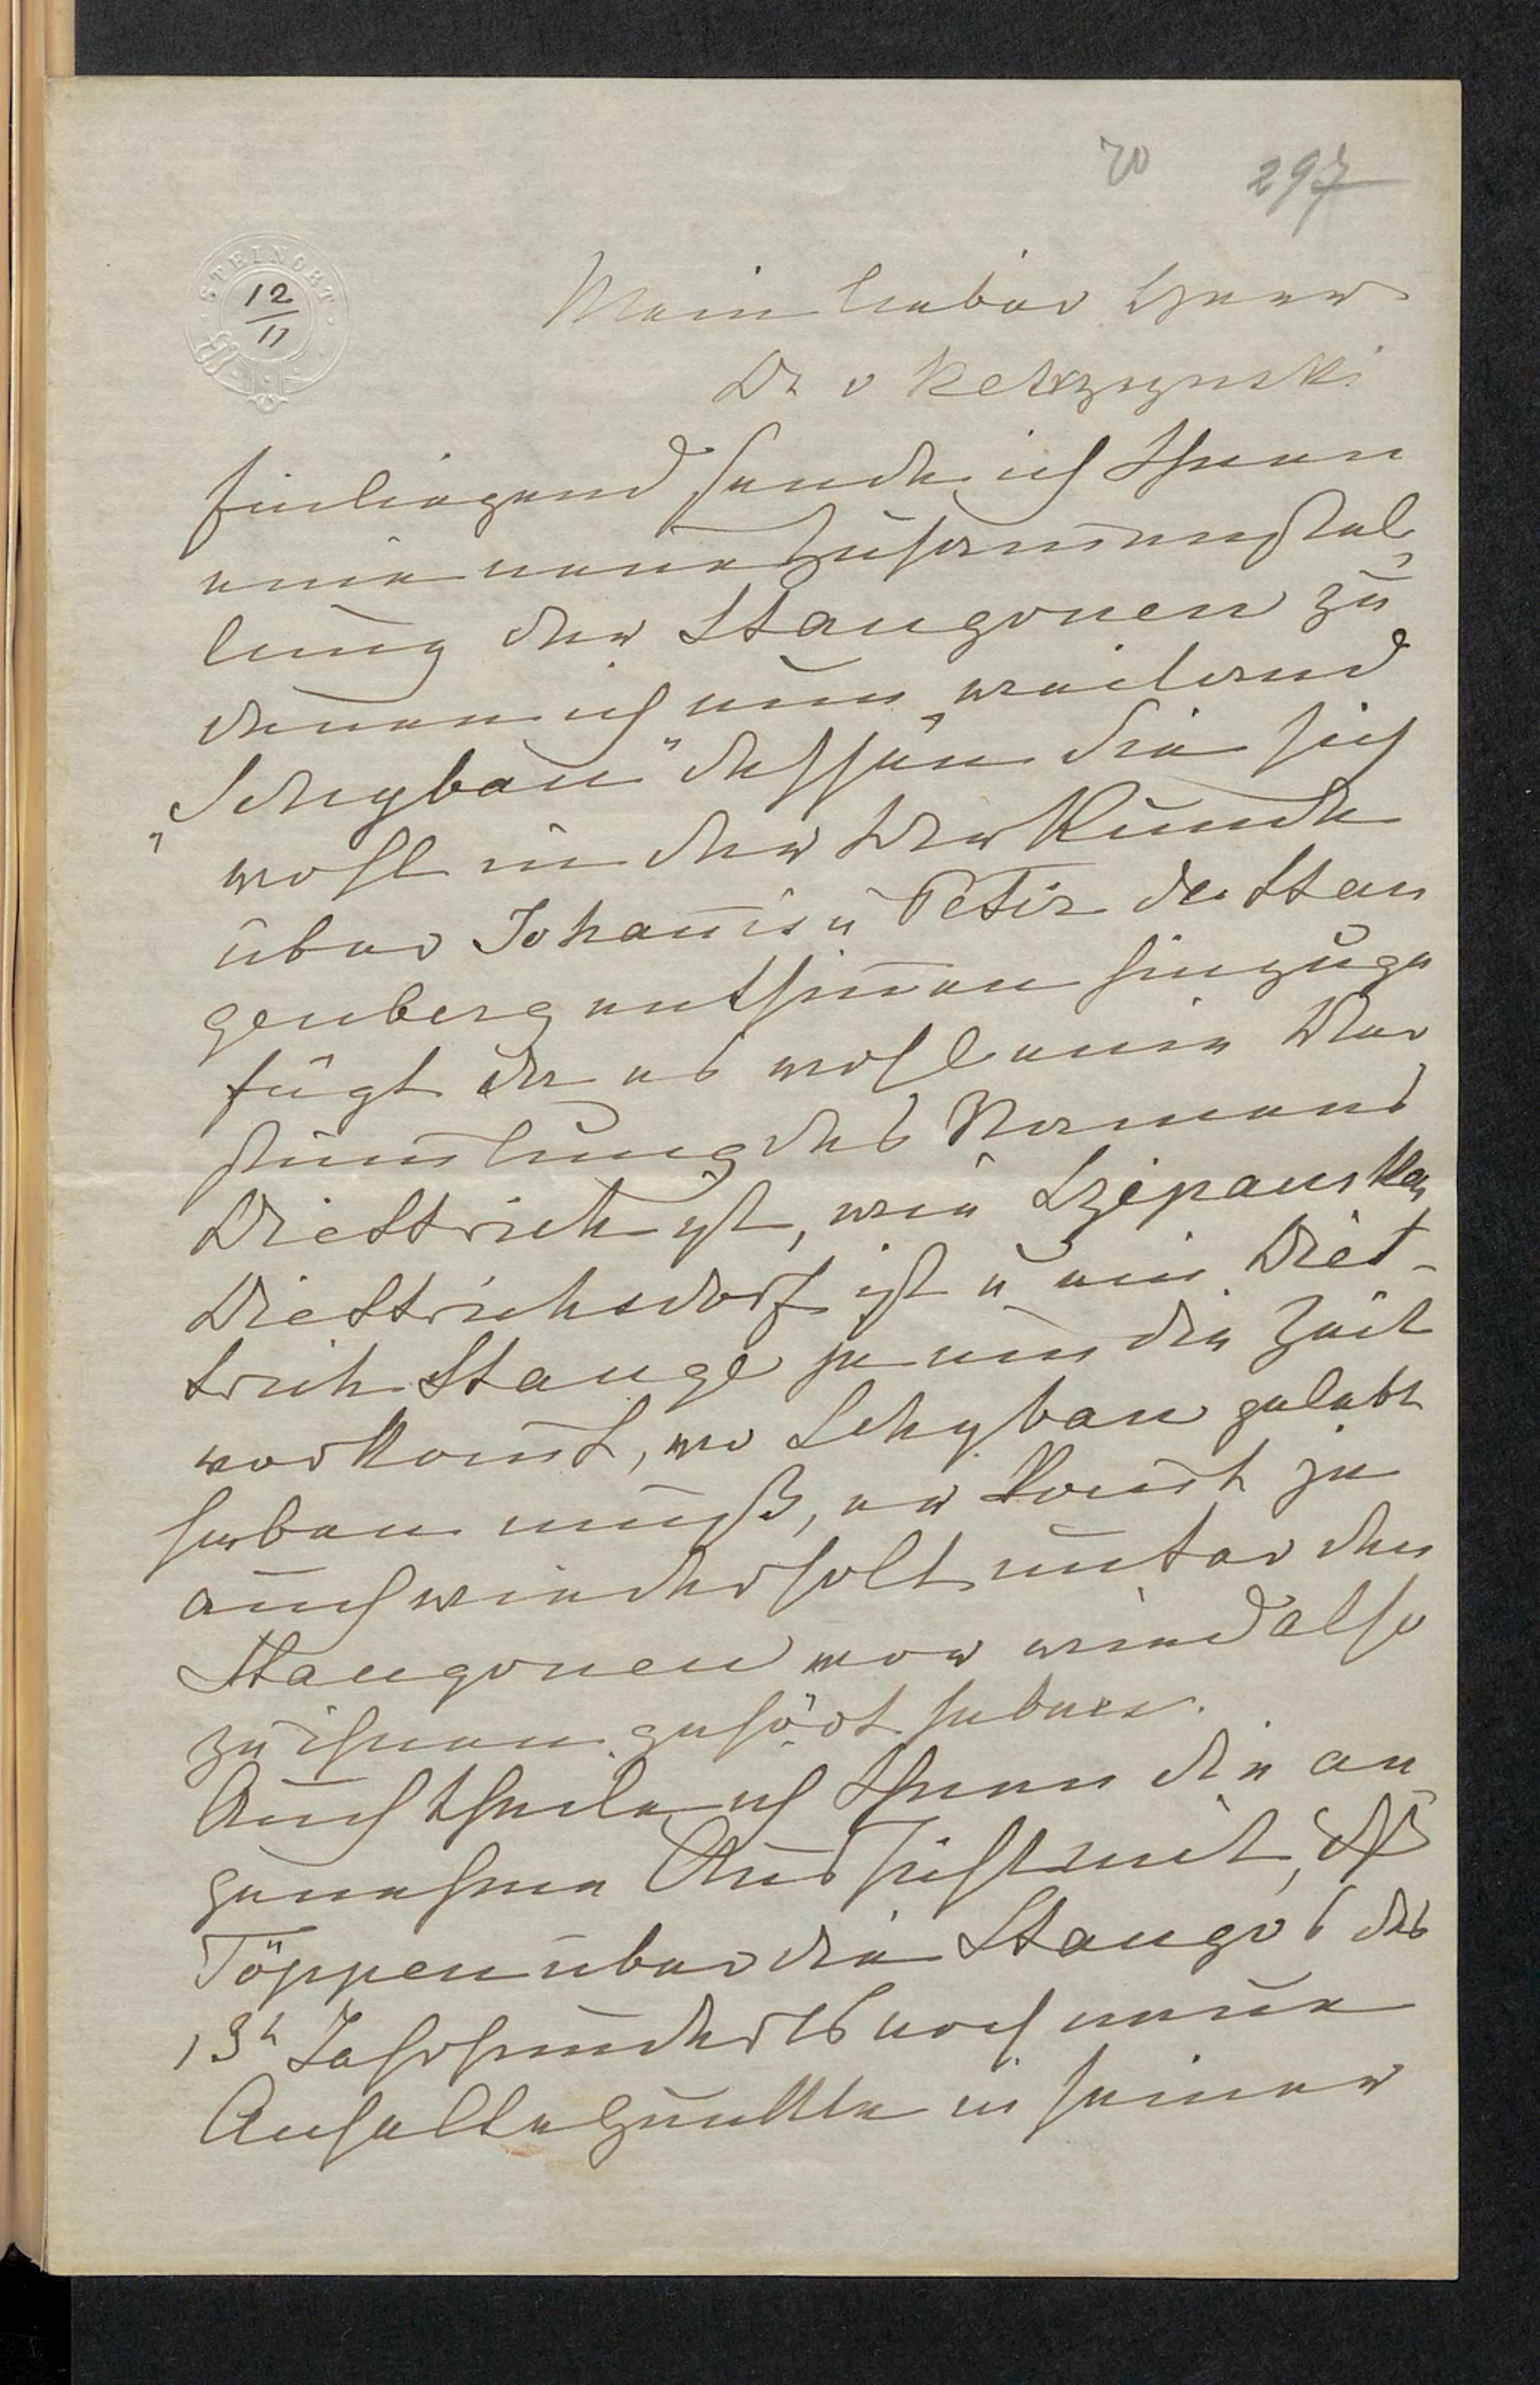 70 297
STEINORT
12
11
Mein lieber Herr
Dr v Ketrzynski
Einliegend sende ich Ihnen
eine neue Zusam̄enstel
lung der Stangonen zu
denen ich nun weilend
„Schyban" dessen Sie sich
wohl in der Urkunde
über Johan̄is u Petir de Stan
genberg entsin̄en hinzuge
fügt da es wohl eine Ver
stüm̄lung des Namens
Diettrich ist, wie Szepanken
Diettrichsdorf ist u ein Diet-
trich Stange ja um die Zeit
vorkom̄t, wo Schyban gelebt
haben muß, er kom̄t ja
auch wiederholt unter den
Stangonen vor wird also
zu ihnen gehört haben.
Auch theile ich Ihnen die an
genehme Aussicht mit, dß
Töppen über die Stango's des
13t Jahrhunderts noch neue
Anhaltepunkte in seiner